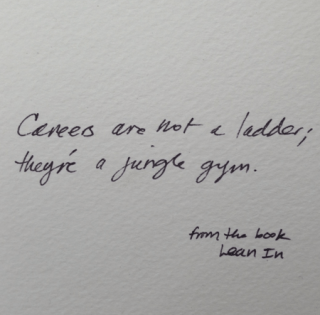 Careers are not a ladder;
they're a jungle gym.
from the book
Lean In